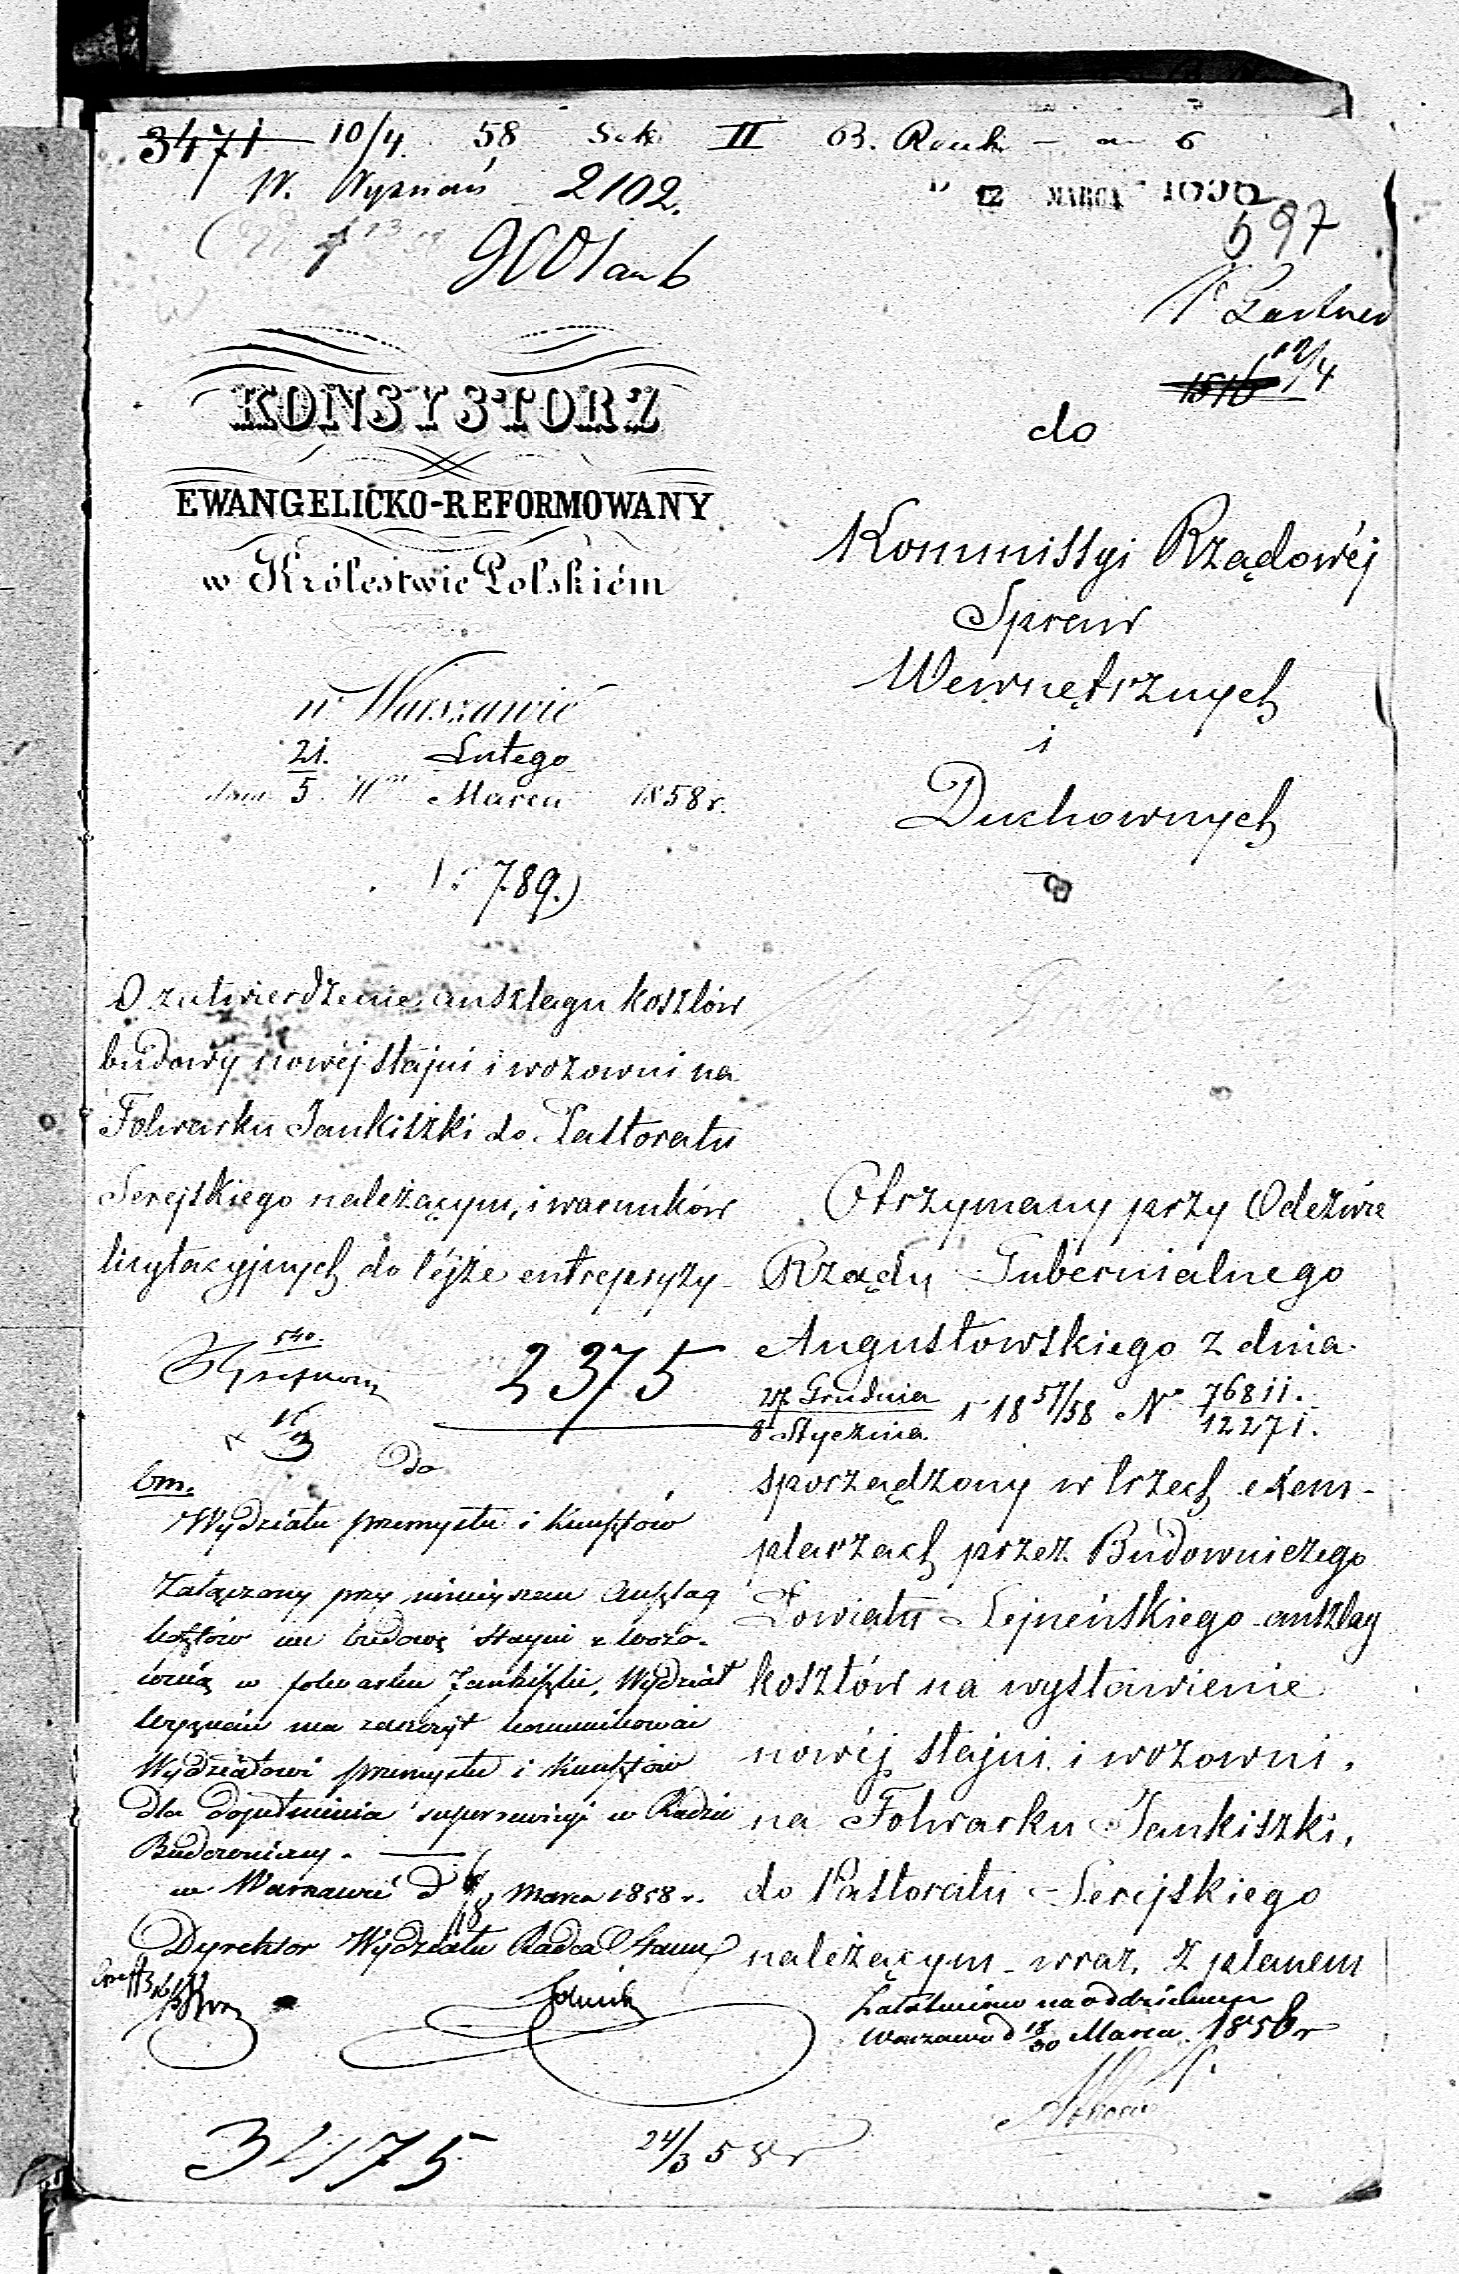 3471 10/4 58 Sek II B.
W. Wyznań 2102.
12 MARCA
597
1516 12/4
KONSYSTORZ
EWANGELICKO-REFORMOWANY
w Królestwie Polskiém
w Warszawie
21. Lutego
dnia 5 Marca 1858 r.
789.)
do
Kommissyi Rządowéj
Spraw
Wewnętrznych
i
Duchownych
O zatwierdzenie anszlagu kosztów
budowy nowéj stajni i wozowni na
Folwarku Jankiszki do Pastoratu
Serejskiego należącym, i warunków
licytacyjnych do téjże entrepryzy
540.
2375
16/3
Do
bm.
Wydziału przemysłu i Kunsztów
Załączony przy niniejszem Anszlag
kosztów na budowę stayni z wozo-
wnią w folwarku Jankiszki, Wydział
Wyznań ma zaszczyt komunikować
Wydziałowi przemysłu i Kunsztów
dla dopełnienia superrewizyi w Radzie
Budowniczey. —
w Warszawie d 6/18 Marca 1858 r.
Dyrektor Wydziału Radca Stanu
34175
24/3 58 r
Otrzymany przy Odezwie
Rządu Gubernialnego
Augustowskiego z dnia
27 Grudnia
8 Stycznia r 18 57/58 No 76811.
12271.
sporządzony w trzech exem-
plarzach przez Budowniczego
Powiatu Sejneńskiego anszlag
kosztów na wystawienie
nowéj stajni i wozowni,
na Folwarku Jankiszki,
do Pastoratu Serejskiego
należącym wraz z planem
Załatwiono na oddzielnem
Warszawa d 18/30 Marca 1858 r